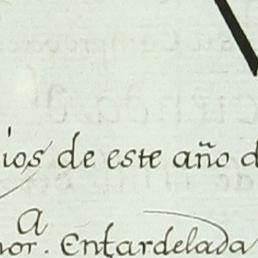 ios de este año d
a
nor. Entardelada